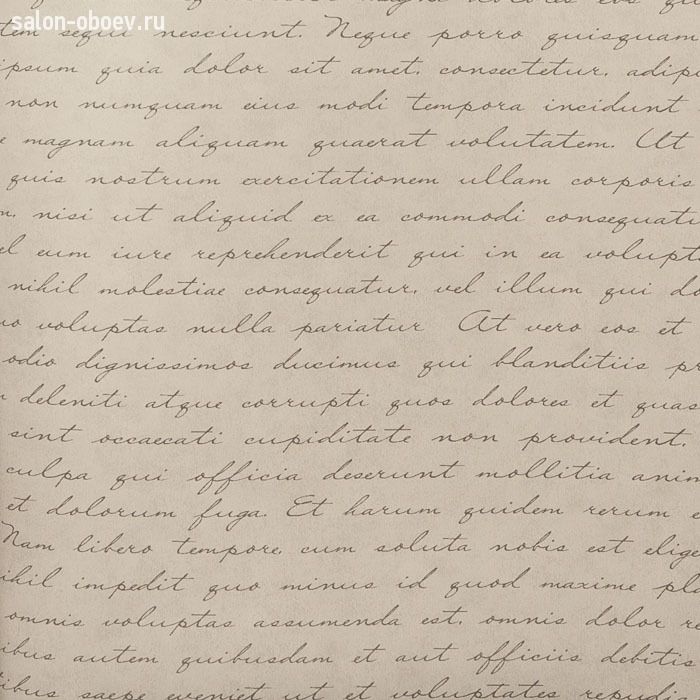 magni dolores eos qu
salon-oboev.ru
tem sequi nesciunt. Neque porro quisquam
ipsum quia dolor sit amet, consectetur, adip
non numquam eius modi tempora incidunt
e magnam aliquam quaerat volutatem. Ut
quis nostrum exercitationem ullam corporis
m, nisi ut aliquid ex ea commodi consequatu
el eum iure reprehenderit qui in ea volupt
nihil molestiae consequatur, vel illum qui do
uo voluptas nulla pariatur At vero eos et
odio dignissimos ducimus qui blanditiis pr
deleniti atque corrupti quos dolores et quas
sint occaecati cupiditate non provident,
culpa qui officia deserunt mollitia anim
et dolorum fuga. Et harum quidem rerum e
Nam libero tempore, cum soluta nobis est elige
ihil impedit quo minus id quod maxime pla
omnis voluptas assumenda est, omnis dolor re
ibus autem quibusdam et aut officiis debitis
ibus saepe eveniet ut et voluptates repudi